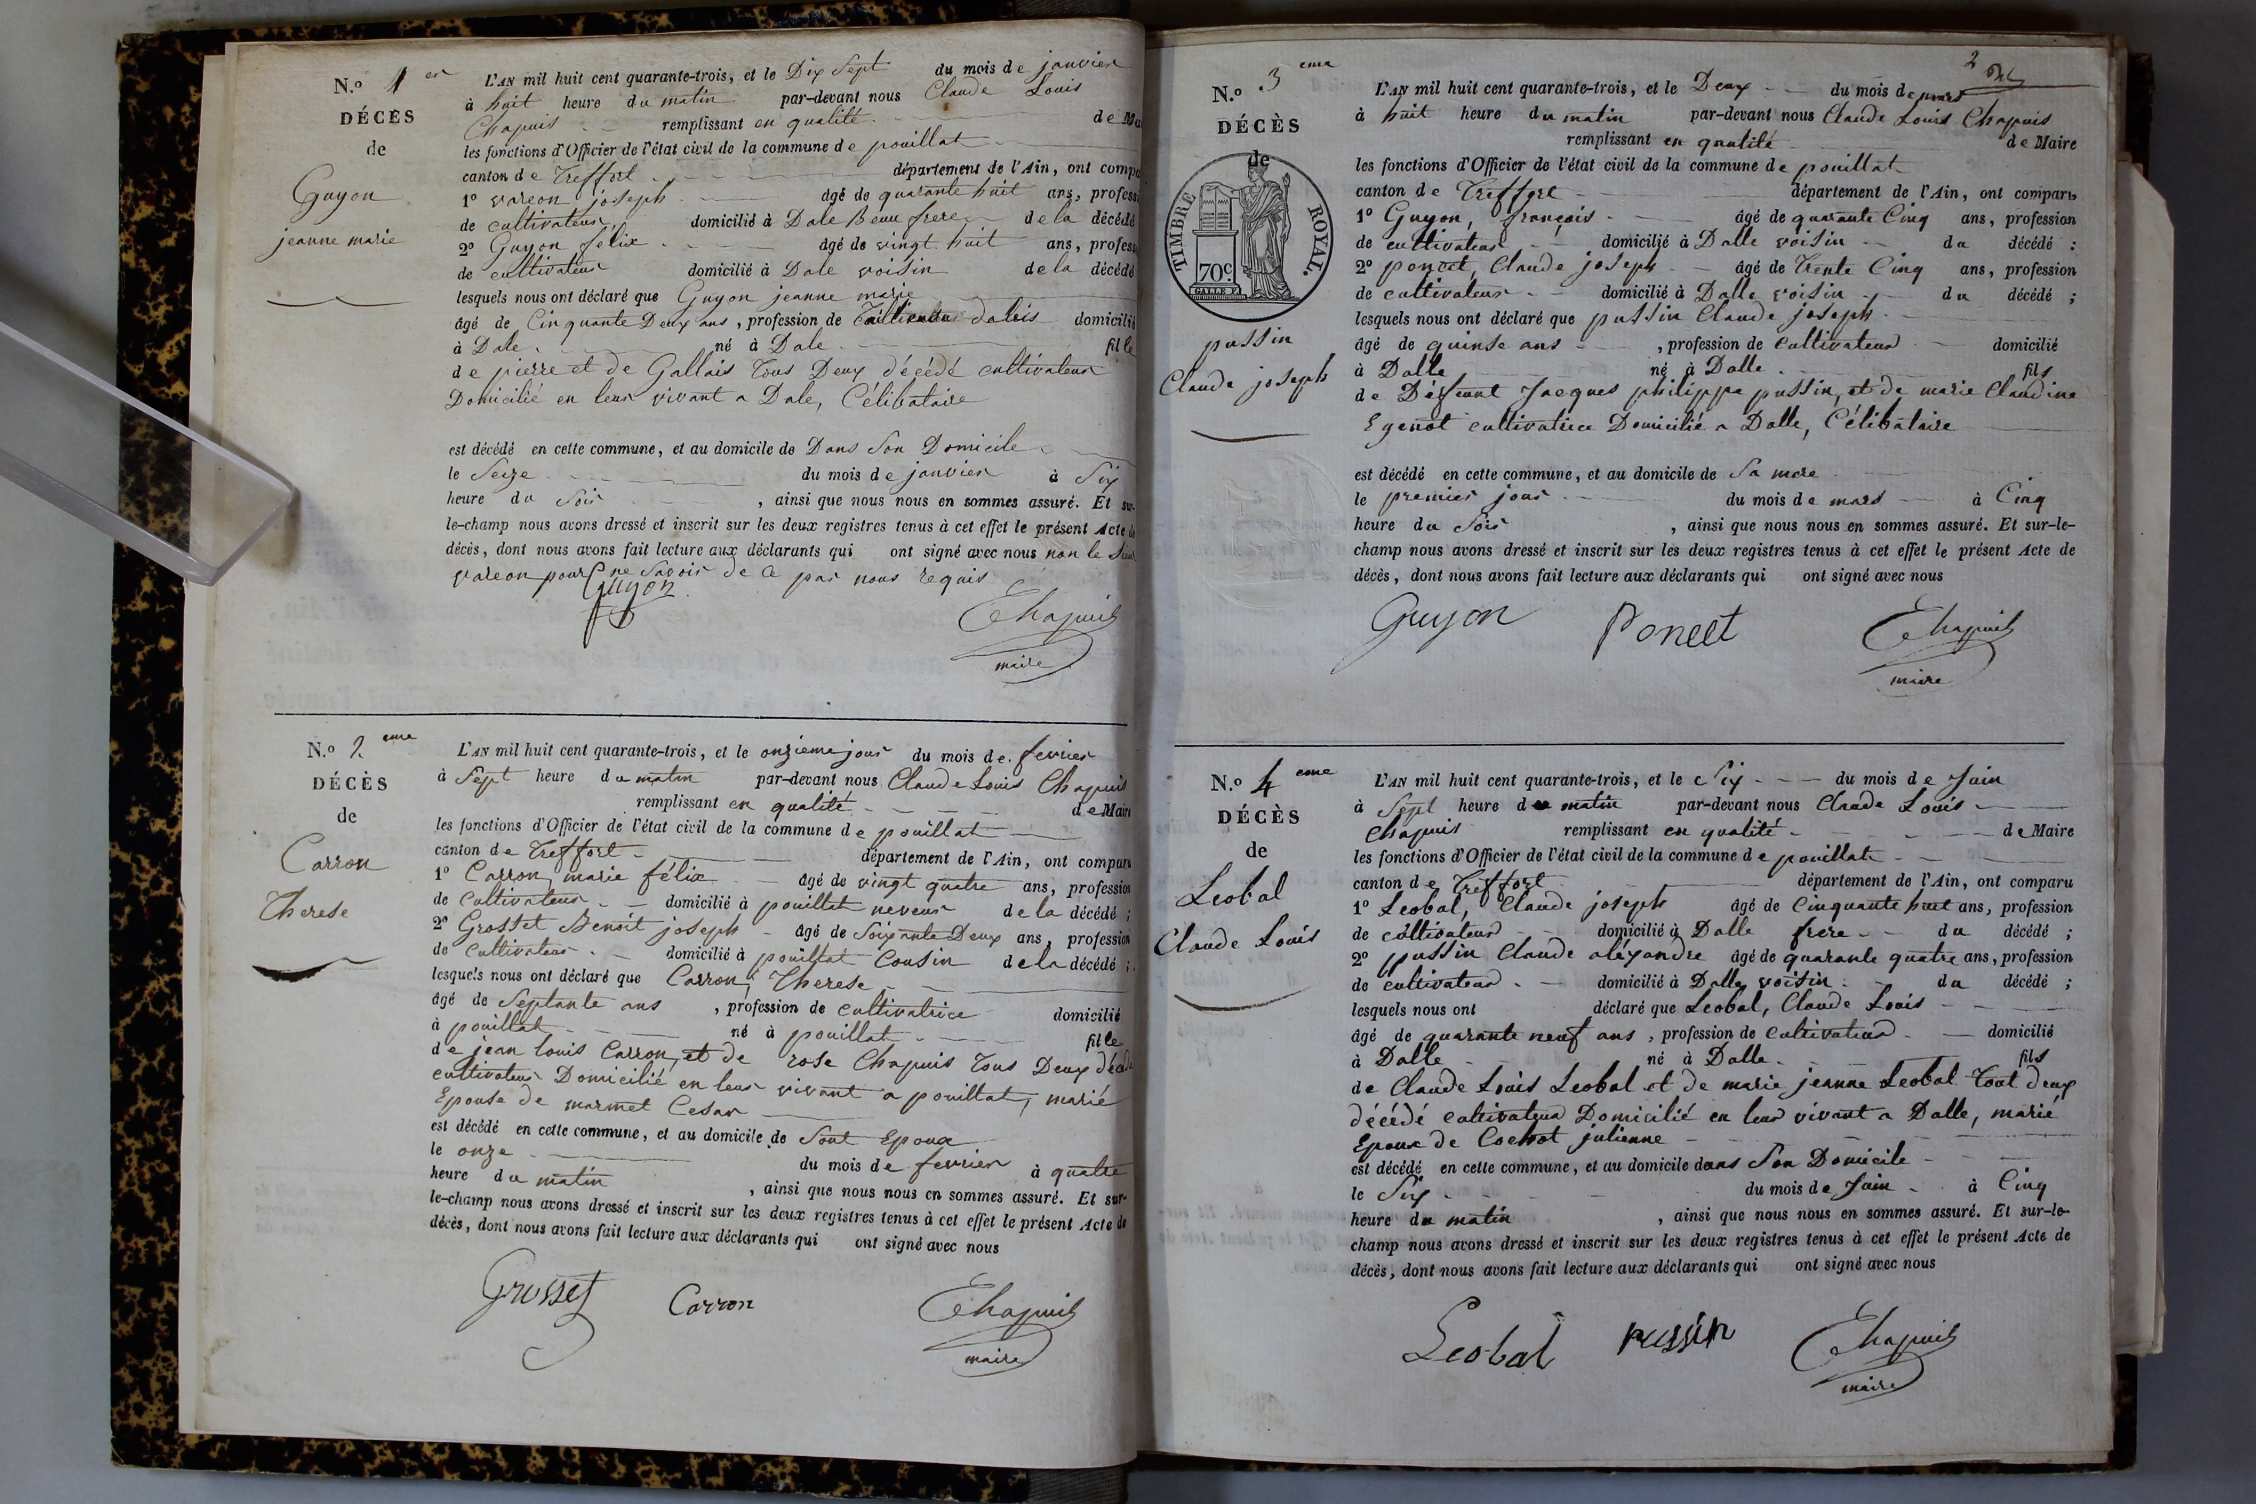 N.o 1 er
DÉCÈS
de
Guyon
jeanne marie
L'AN mil huit cent quarante-trois, et le Dix Sept du mois de janvier
à huit heure du matin par-devant nous Claude Louis
Chapuis remplissant en qualité de Ma
les fonctions d'Officier de l'état civil de la commune de pouillat
canton de Treffort département de l'Ain, ont compa
1o vareon joseph âgé de quarante huit ans, professi
de cultivateur domicilié à Dale Beau frere de la décédé
2o Guyon félix âgé de vingt huit ans, profess
de cultivateur domicilié à Dale voisin de la décédé
lesquels nous ont déclaré que Guyon jeanne marie
âgé de Cinquante Deux ans, profession de domicilié
à Dale né à Dale fille
de pierre et de Gallais Tous Deux décédé cultivateur
Domicilié en leur vivant a Dale, Célibataire
est décédé en cette commune, et au domicile de Dans Son Domicile
le Seize du mois de janvier à Six
heure du Soir, ainsi que nous nous en sommes assuré. Et sur-
le-champ nous avons dressé et inscrit sur les deux registres tenus à cet effet le présent Acte de
décès, dont nous avons fait lecture aux déclarants qui ont signé avec nous non le Sieur
vareon pour ne Savoir de ce par nous requis
Guyon Chapuis
maire
N.o 2 eme
DÉCÈS
de
Carron
Therese
L'AN mil huit cent quarante-trois, et le onzieme jour du mois de fevrier
à Sept heure du matin par-devant nous Claude Louis Chapuis
remplissant en qualité de Maire
les fonctions d'Officier de l'état civil de la commune de pouillat
canton de Treffort département de l'Ain, ont comparu
1o Carron marie félix âgé de vingt quatre ans, profession
de Cultivateur domicilié à pouillat neveur de la décédé ;
2o Grosset Benoit joseph âgé de Soixante Deux ans, profession
de Cultivateur domicilié à pouillat Cousin de la décédé ;
lesquels nous ont déclaré que Carron, Therese
âgé de Septante ans, profession de cultivatrice domicilié
à pouillat né à pouillat fille
de jean louis Carron, et de rose Chapuis Tous Deux décédé
cultivateur Domicilié en leur vivant a pouillat, marié
Epouse de marmet Cesar
est décédé en cette commune, et au domicile de Sont Epoux
le onze du mois de fevrier à quatre
heure du matin, ainsi que nous nous en sommes assuré. Et sur-
le-champ nous avons dressé et inscrit sur les deux registres tenus à cet effet le présent Acte de
décès, dont nous avons fait lecture aux déclarants qui ont signé avec nous
Grosset Carron Chapuis
maire
2
N.o 3 eme
DÉCÈS
de
TIMBRE ROYAL.
70c
pussin
Claude joseph
L'AN mil huit cent quarante-trois, et le Deux du mois de mars
à huit heure du matin par-devant nous Claude Louis Chapuis
remplissant en qualité de Maire
les fonctions d'Officier de l'état civil de la commune de pouillat
canton de Treffort département de l'Ain, ont comparu
1o Guyon, françois âgé de quarante Cinq ans, profession
de cultivateur domicilié à Dalle voisin du décédé ;
2o poncet, Claude joseph âgé de Trente Cinq ans, profession
de cultivateur domicilié à Dalle voisin du décédé ;
lesquels nous ont déclaré que pussin Claude joseph
âgé de quinse ans, profession de cultivateur domicilié
à Dalle né à Dalle fils
de Défeunt Jacques philippe pussin, et de marie Claudine
Egenot cultivatrice Domicilié a Dalle, Célibataire
est décédé en cette commune, et au domicile de Sa mere
le premier jour du mois de mars à Cinq
heure du Soir, ainsi que nous nous en sommes assuré. Et sur-le-
champ nous avons dressé et inscrit sur les deux registres tenus à cet effet le présent Acte de
décès, dont nous avons fait lecture aux déclarants qui ont signé avec nous
Guyon Poncet Chapuis
maire
N.o 4 eme
DÉCÈS
de
Leobal
Claude Louis
L'AN mil huit cent quarante-trois, et le Six du mois de Juin
à Sept heure du matin par-devant nous Claude Louis
Chapuis remplissant en qualité de Maire
les fonctions d'Officier de l'état civil de la commune de pouillat
canton de Treffort département de l'Ain, ont comparu
1o Leobal, Claude joseph âgé de Cinquante huit ans, profession
de cultivateur domicilié à Dalle frere du décédé ;
2o pussin Claude aléxandre âgé de quarante quatre ans, profession
de cultivateur domicilié à Dalle, voisin du décédé ;
lesquels nous ont déclaré que Leobal, Claude Louis
âgé de quarante neuf ans, profession de cultivateur domicilié
à Dalle né à Dalle fils
de Claude Louis Leobal et de marie jeanne Leobal Tout deux
décédé cultivateur Domicilié en leur vivant a Dalle, marié
Epoux de Cochot julienne
est décédé en cette commune, et au domicile dans Son Domicile
le Six du mois de Juin à Cinq
heure du matin, ainsi que nous nous en sommes assuré. Et sur-le-
champ nous avons dressé et inscrit sur les deux registres tenus à cet effet le présent Acte de
décès, dont nous avons fait lecture aux déclarants qui ont signé avec nous
Leobal pussin Chapuis
maire